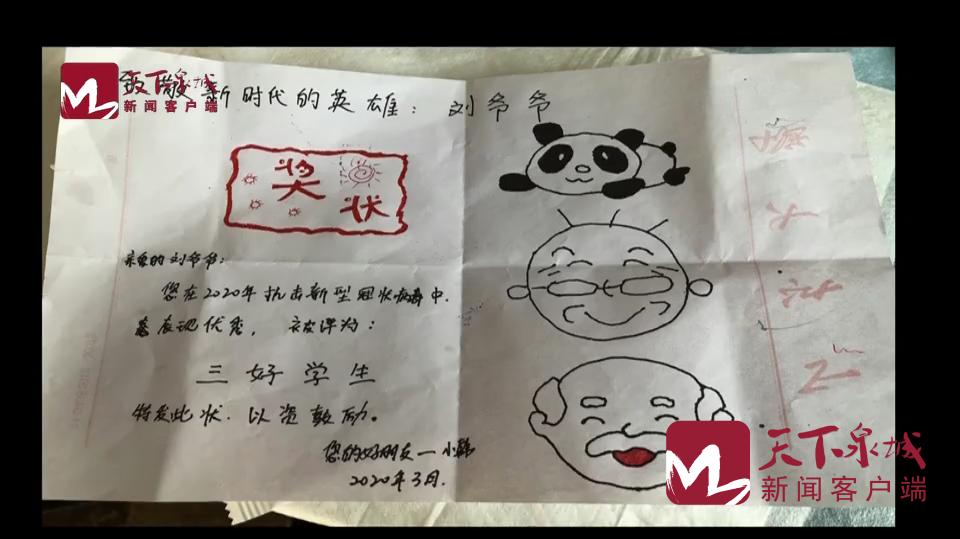 致敬新时代的英雄：刘爷爷
奖状
亲爱的刘爷爷：
您在2020年抗击新型冠状病毒中，
表现优秀，被评为：
三好学生
特发此状，以资鼓励。
您的好朋友—小韩
2020年3月.
天下泉城
新闻客户端
天下泉城
新闻客户端